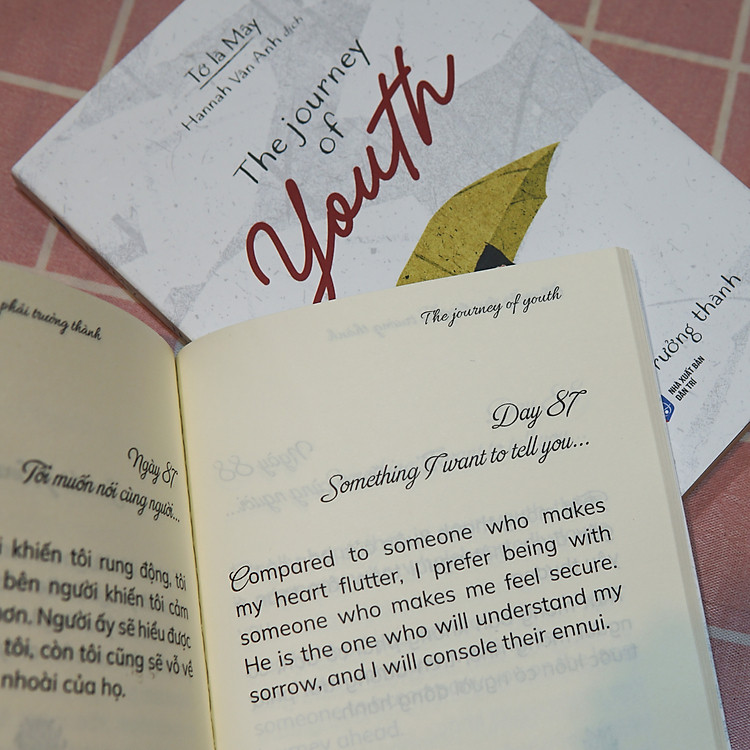 Tớ là Mây
Hannah Vân Anh dịch
The journey
of
Youth
trưởng thành
NHÀ XUẤT BẢN
DÂN TRÍ
phải trưởng thành
Ngày 87
Tôi muốn nói cùng người...
khiến tôi rung động, tôi
bên người khiến tôi cảm
hơn. Người ấy sẽ hiểu được
tôi, còn tôi cũng sẽ vỗ về
nhoài của họ.
The journey of youth
Day 87
Something I want to tell you...
Compared to someone who makes
my heart flutter, I prefer being with
someone who makes me feel secure.
He is the one who will understand my
sorrow, and I will console their ennui.